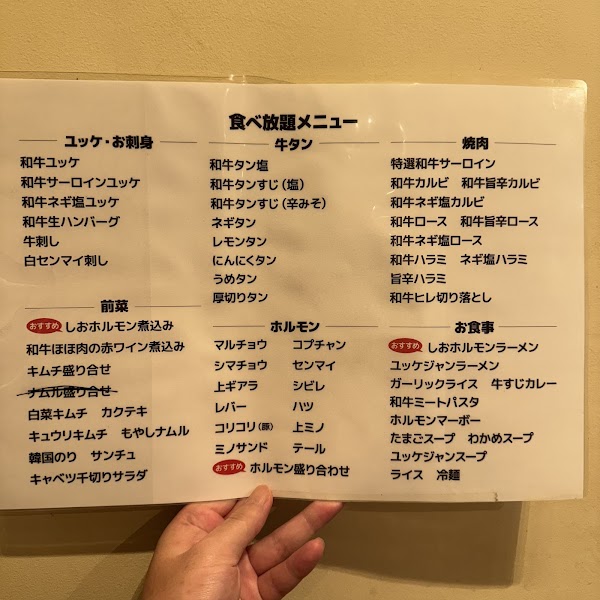 食べ放題メニュー
ユッケ・お刺身
和牛ユッケ
和牛サーロインユッケ
和牛ネギ塩ユッケ
和牛生ハンバーグ
牛刺し
白センマイ刺し
牛タン
和牛タン塩
和牛タンすじ(塩)
和牛タンすじ(辛みそ)
ネギタン
レモンタン
にんにくタン
うめタン
厚切りタン
焼肉
特選和牛サーロイン
和牛カルビ 和牛旨辛カルビ
和牛ネギ塩カルビ
和牛ロース 和牛旨辛ロース
和牛ネギ塩ロース
和牛ハラミ ネギ塩ハラミ
旨辛ハラミ
和牛ヒレ切り落とし
前菜
おすすめ しおホルモン煮込み
和牛ほほ肉の赤ワイン煮込み
キムチ盛り合せ
ナムル盛り合せ
白菜キムチ カクテキ
キュウリキムチ もやしナムル
韓国のり サンチュ
キャベツ千切りサラダ
ホルモン
マルチョウ コプチャン
シマチョウ センマイ
上ギアラ シビレ
レバー ハツ
コリコリ(豚) 上ミノ
ミノサンド テール
おすすめ ホルモン盛り合わせ
お食事
おすすめ しおホルモンラーメン
ユッケジャンラーメン
ガーリックライス 牛すじカレー
和牛ミートパスタ
ホルモンマーボー
たまごスープ わかめスープ
ユッケジャンスープ
ライス 冷麺